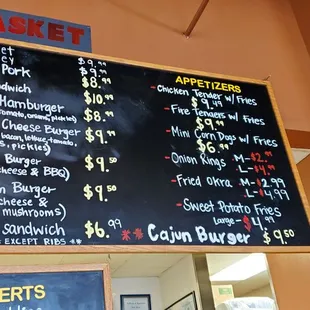 ASKET
et $9.99
ey $9.99
Pork $9.99
dwich $8.99
Hamburger $10.99
tomato, onions, pickles)
Cheese Burger $8.99
bacon, lettuce, tomato,
pickles) $9.99
Burger $9.50
cheese & BBQ)
n Burger $9.50
cheese &
mushrooms)
sandwich $6.99
EXCEPT RIBS **
APPETIZERS
-Chicken Tender w/ Fries
$9.49
-Fire Tenders w/ Fries
$9.99
-Mini Corn Dogs w/ Fries
$6.99
-Onion Rings M-$2.99
L-$4.99
-Fried Okra M-$2.99
L-$4.99
-Sweet Potato Fries
Large-$4.99
** Cajun Burger $9.50
ERTS